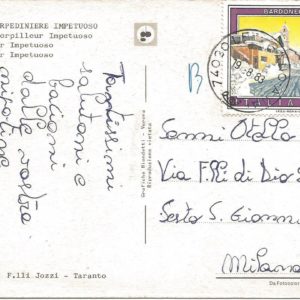 RPEDINIERE IMPETUOSO
orpilleur Impetuoso
r Impetuoso
r Impetuoso
Tantissimi
saluti e
bacioni
dalla vostra
B
BARDONE
ITALIA
74030
Via F.lli di Dio
Sesto S. Gionni
Milano
Grafiche Biondetti - Verona
Riproduzione vietata
F.lli Jozzi - Taranto